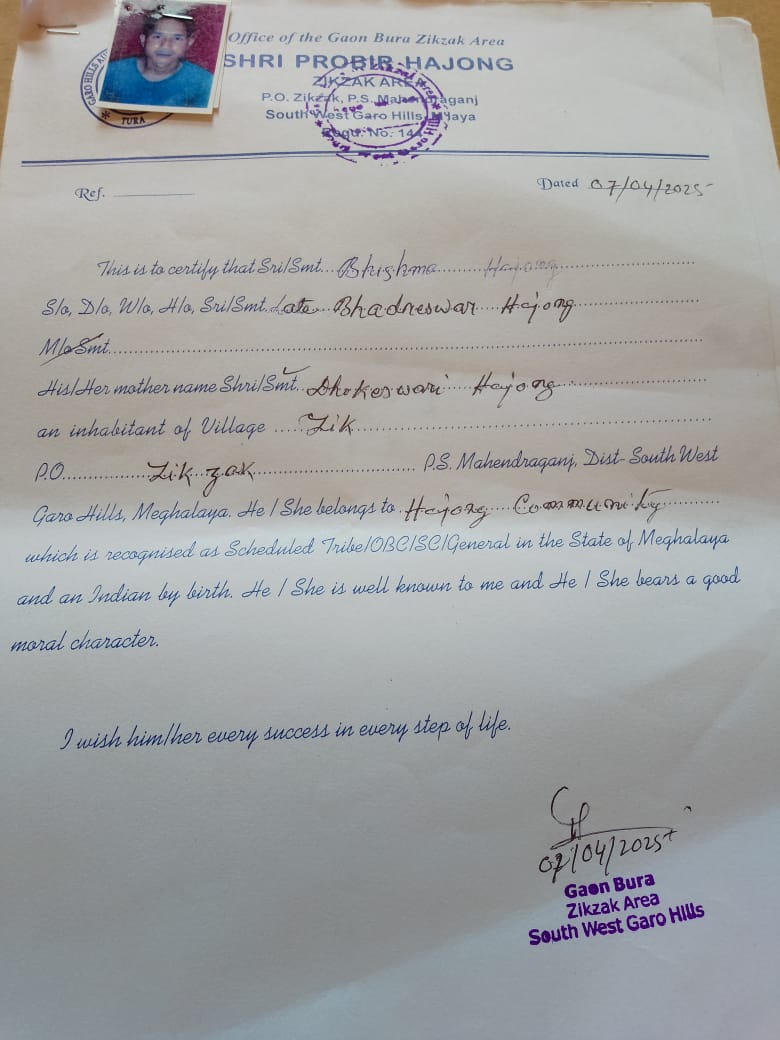 Office of the Gaon Bura Zikzak Area
SHRI PROBIR HAJONG
ZIKZAK AREA
P.O. Zikzak, P.S. Mahendraganj
South West Garo Hills, M'laya
Regd. No. 144
GARO HILLS AU
TURA
Ref.
Dated 07/04/2025
This is to certify that Sri/Smt. Bhishma Hajong
S/o, D/o, W/o, H/o, Sri/Smt. Late Bhadreswar Hajong
M/o Smt.
His/Her mother name Shri/Smt. Dhokeswari Hajong
an inhabitant of Village Zik
P.O. Zik zak P.S. Mahendraganj, Dist- South West
Garo Hills, Meghalaya. He / She belongs to Hajong Community
which is recognised as Scheduled Tribe/OBC/SC/General in the State of Meghalaya
and an Indian by birth. He / She is well known to me and He / She bears a good
moral character.
I wish him/her every success in every step of life.
07/04/2025
Gaon Bura
Zikzak Area
South West Garo Hills